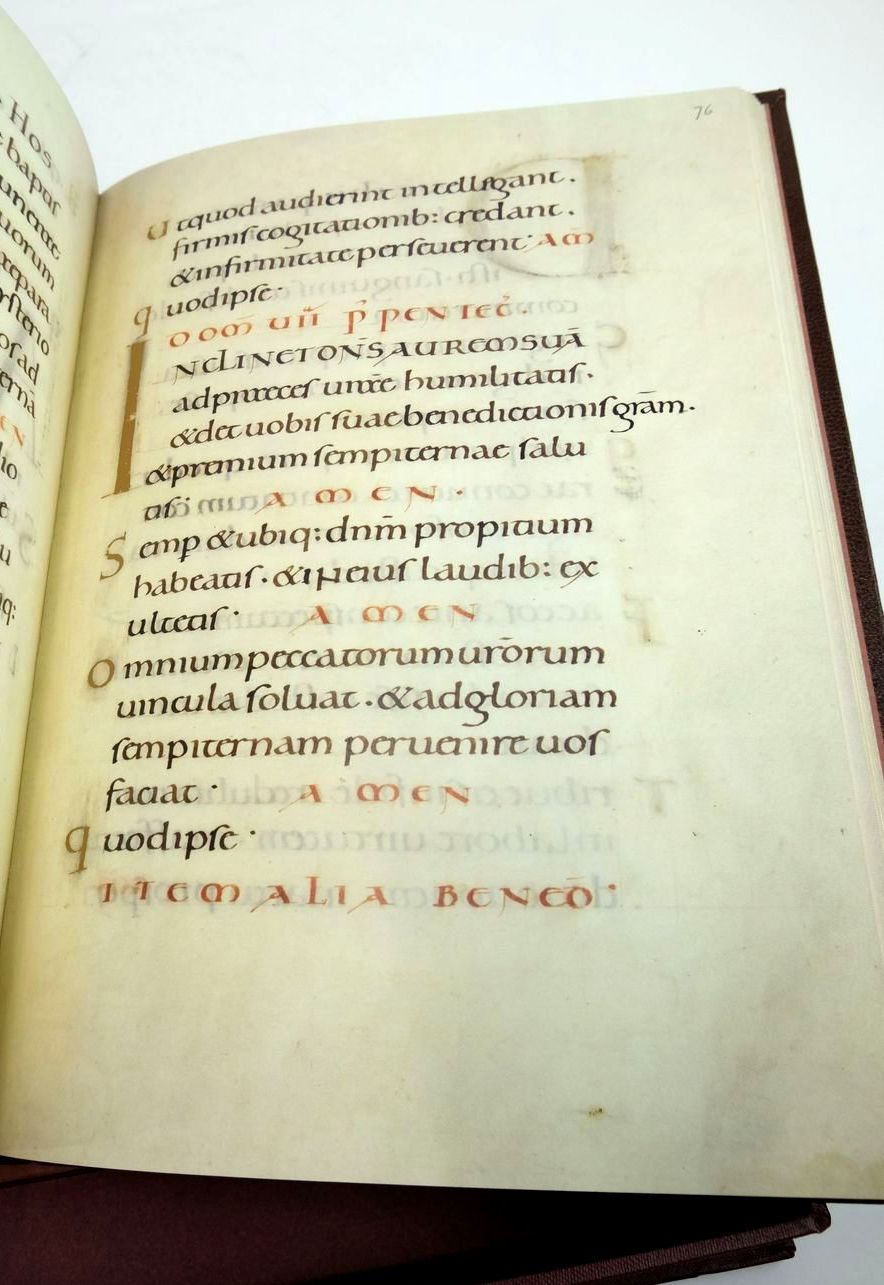 Hos
76
Utquod audierint intellegant.
firmis cogitationib: credant.
&infirmitate perseuerent· Am
quodipse·
Inclinet dn̄s aurem suā
ad praeces urae humilitatis.
&det uobis suae benedictionis grām.
&premium sempiternae salu
tis: AMEN·
Semp &ubiq: dnm̄ propitium
habeatis·&in eius laudib: ex
ultetis· AMEN
Omnium peccatorum urōrum
uincula soluat·&ad gloriam
sempiternam peruenire uos
faciat· AMEN
quodipse·
ITEM ALIA BENED̄·